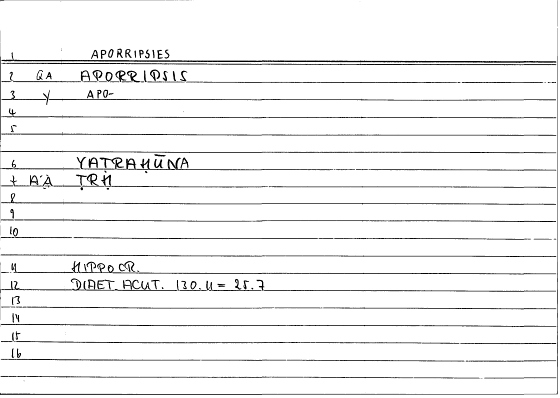 1 APORRIPSIES
2 QA APORRIPSIS
3 Y APO-
4
5
6 YATRAḤŪNA
7 A'Ạ̄ ṬRḤ
8
9
10
11 HIPPOCR.
12 DIAET. ACUT. 130.11 = 25.7
13
14
15
16